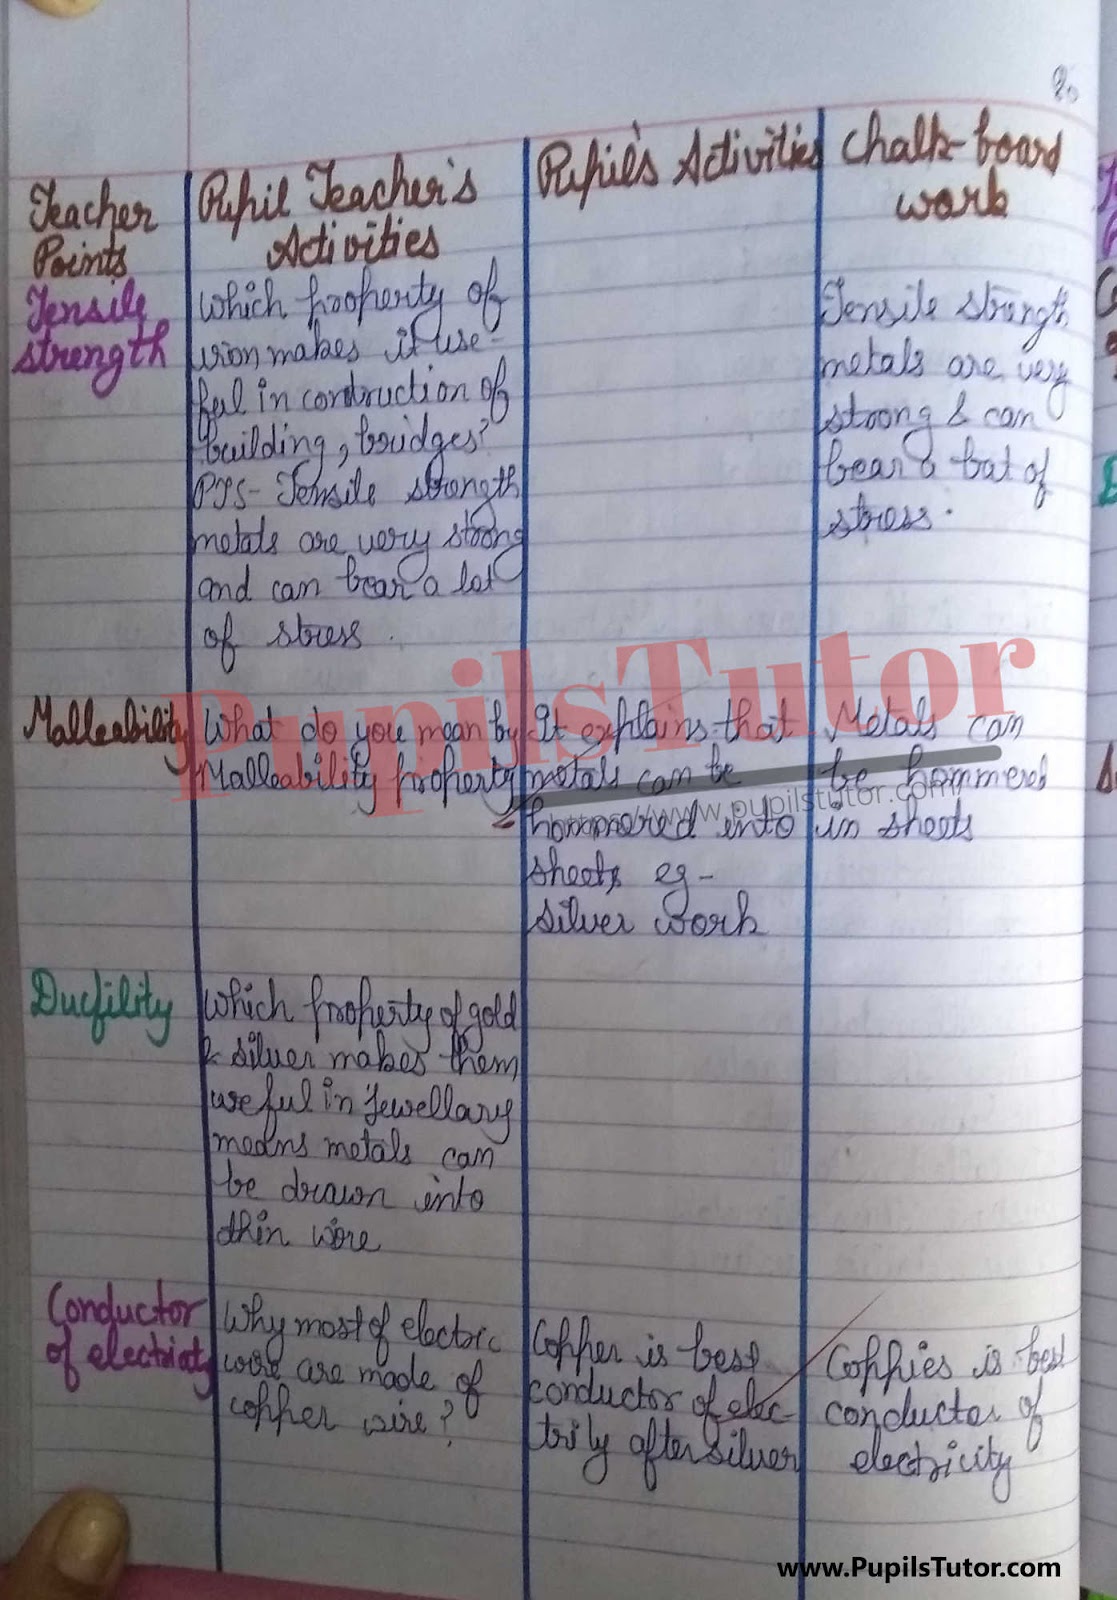 Teacher
Points
Pupil Teacher's
Activities
Pupil's Activities
Chalk-board
work
Tensile
strength
Which property of
iron makes it use-
ful in contruction of
building, bridges?
PTS- Tensile strength
metals are very strong
and can bear a lot
of stress.
Tensile strength
metals are very
strong & can
bear a bat of
stress.
Malleability
What do you mean by
Malleability property
It explains that
metals can be
hammered into
sheets eg-
silver work
Metals can
be hommered
in sheets
Ductility
Which property of gold
& silver makes them
useful in Jewellary
means metals can
be drawn into
thin wire
Conductor
of electricity
Why most of electric
wire are made of
copper wire?
Copper is best
conductor of elec-
trity after silver
Coppies is best
conductor of
electricity
PupilsTutor
https://www.pupilstutor.com/
www.PupilsTutor.com